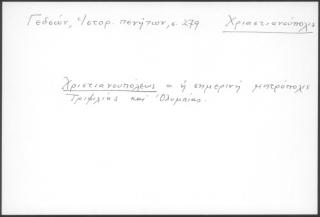 Γεδεών, Ἱστορ. πενήτων, σ. 279 Χριστιανούπολις
Χριστιανουπόλεως = ἡ σημερινή μητρόπολις
Τριφυλίας καί Ὀλυμπίας.